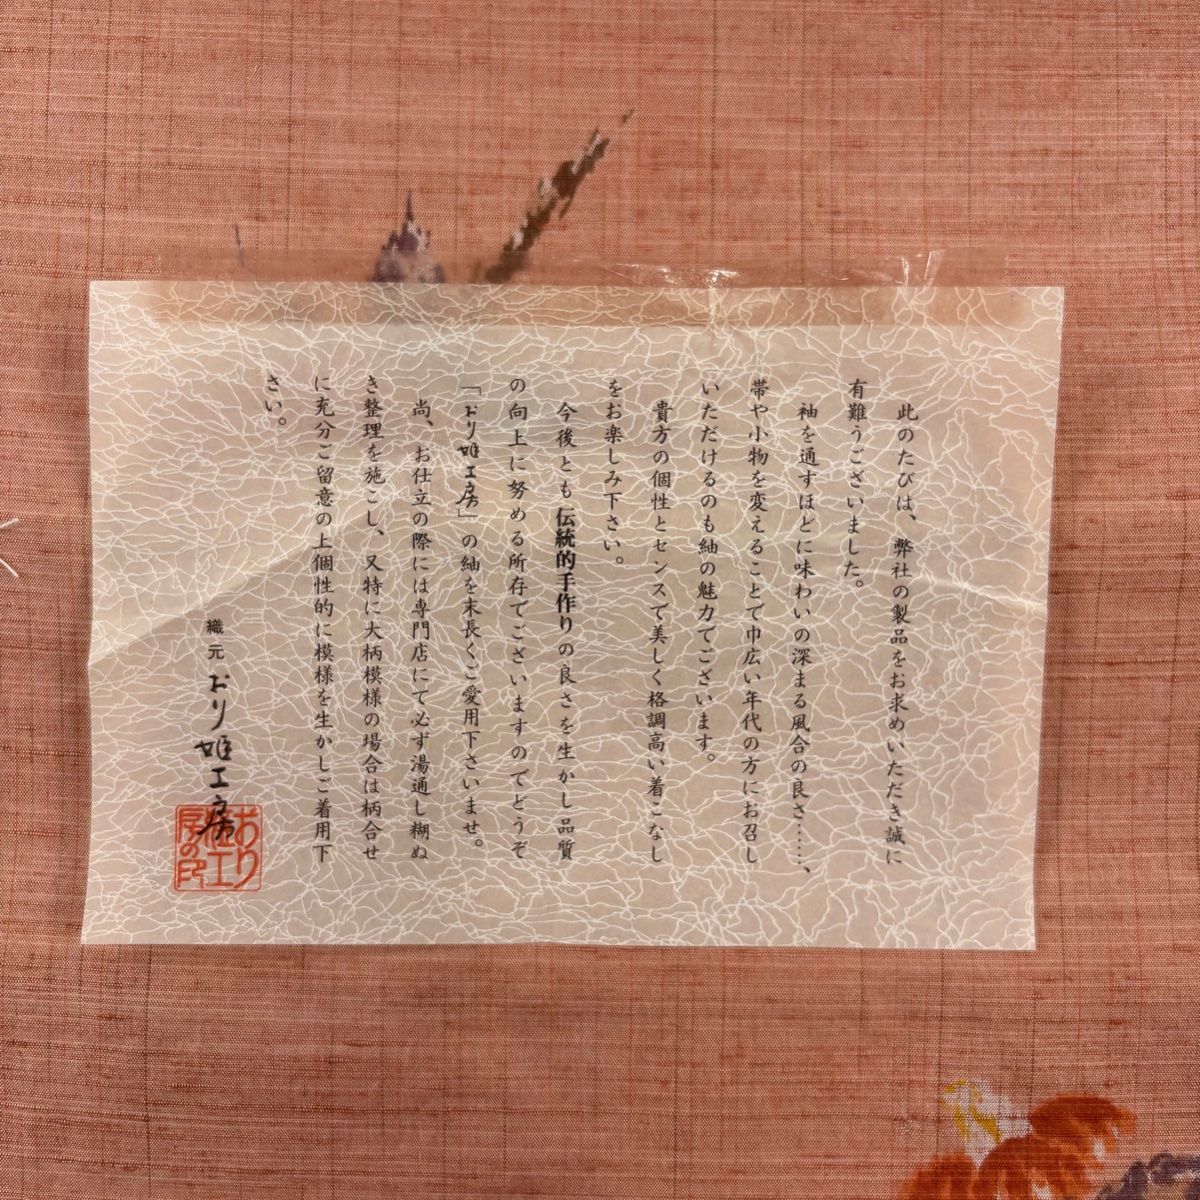 此のたびは、弊社の製品をお求めいただき誠に
有難うございました。
袖を通すほどに味わいの深まる風合の良さ……、
帯や小物を変えることで巾広い年代の方にお召し
いただけるのも紬の魅力でございます。
貴方の個性とセンスで美しく格調高い着こなし
をお楽しみ下さい。
今後とも伝統的手作りの良さを生かし品質
の向上に努める所存でございますのでどうぞ
「おり姫工房」の紬を末長くご愛用下さいませ。
尚、お仕立の際には専門店にて必ず湯通し糊ぬ
き整理を施こし、又特に大柄模様の場合は柄合せ
に充分ご留意の上個性的に模様を生かしご着用下
さい。
織元 おり姫工房
おり
姫工
房の印